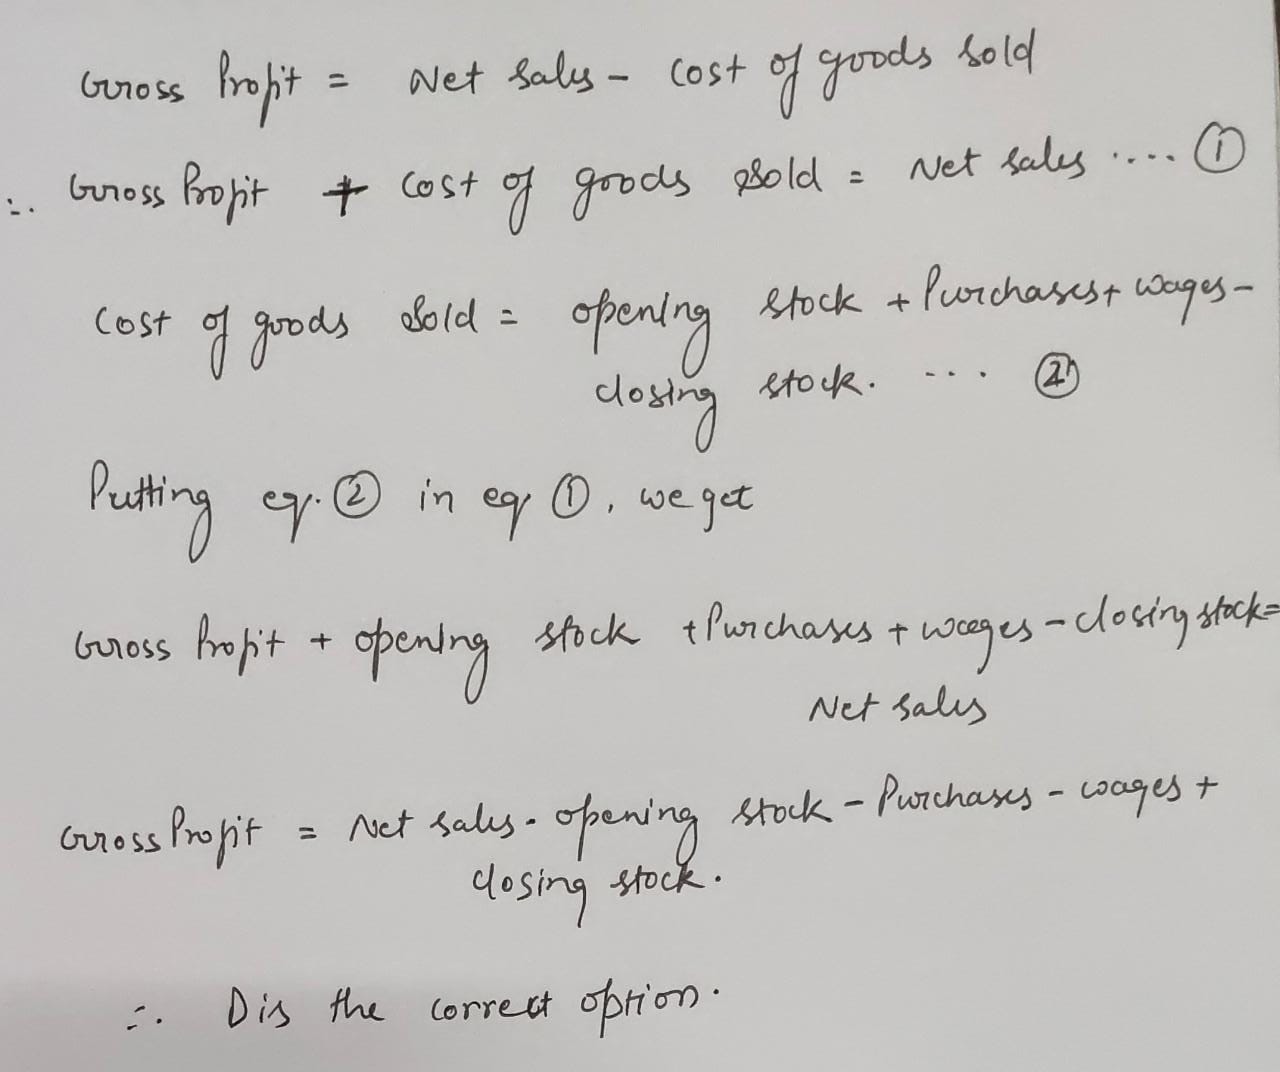 Gross Profit = Net sales - cost of goods sold
∴ Gross Profit + cost of goods sold = Net sales .... ①
cost of goods sold = opening stock + Purchases + wages -
closing stock. ... ②
Putting eq. ② in eq ①, we get
Gross Profit + opening stock + Purchases + wages - closing stock =
Net sales
Gross Profit = Net sales - opening stock - Purchases - wages +
closing stock.
∴ D is the correct option.